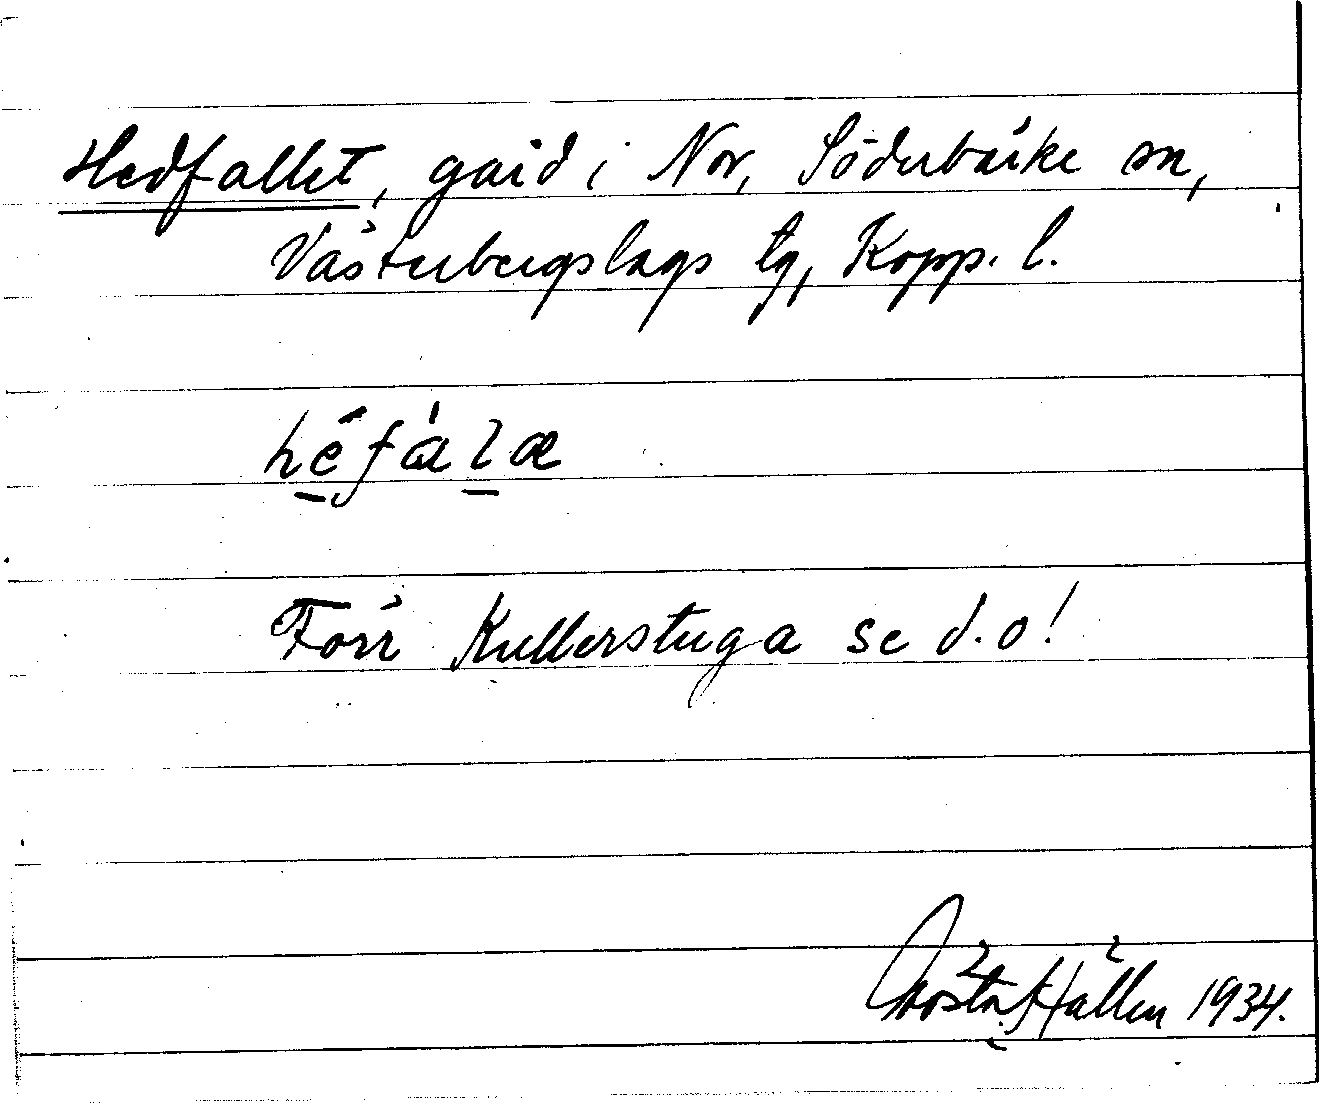 Hedfallet, gård i Nor, Söderbärke sn,
Västerbergslags tg, Kopp. l.
héfàlæ
Förr Kullerstuga se d.o!
Gösta Hällen 1934.